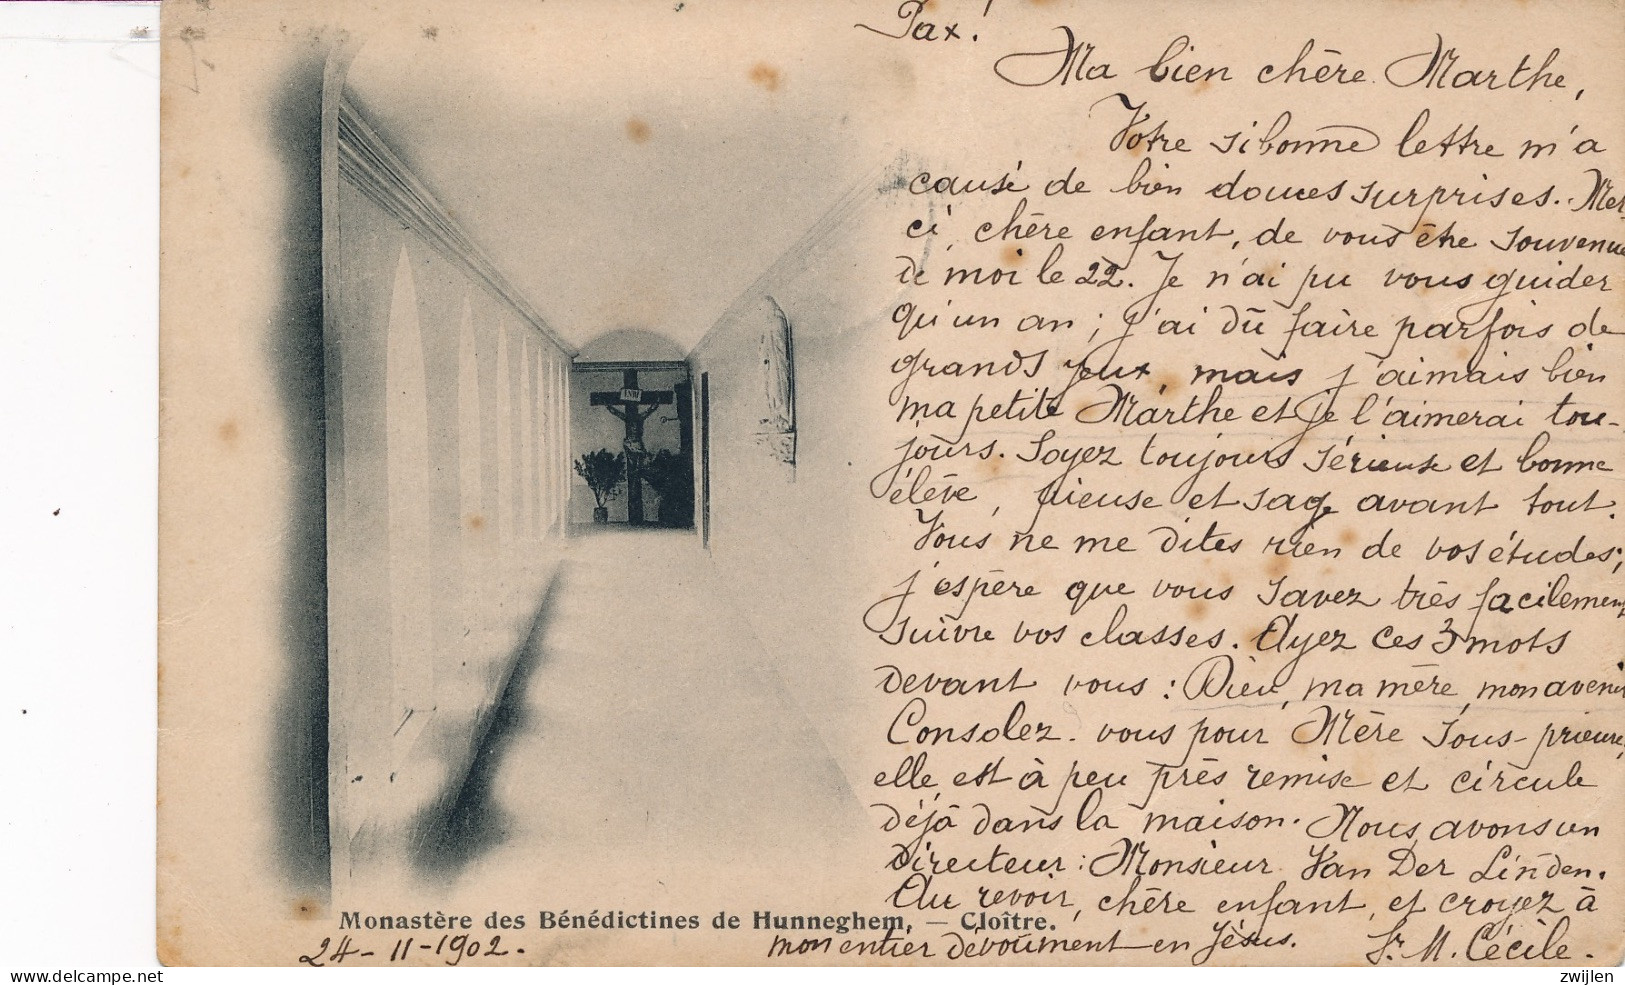 Pax!
Ma bien chère Marthe,
Votre si bonne lettre m'a
causé de bien douces surprises. Mer-
ci, chère enfant, de vous être souvenue
de moi le 22. Je n'ai pu vous guider
qu'un an ; j'ai dû faire parfois de
grands yeux, mais j'aimais bien
ma petite Marthe et je l'aimerai tou-
jours. Soyez toujours sérieuse et bonne
élève, pieuse et sage avant tout.
Vous ne me dites rien de vos études;
j'espère que vous savez très facilement
suivre vos classes. Ayez ces 3 mots
devant vous : Dieu, ma mère, mon avenir
Consolez-vous pour Mère Sous-prieure,
elle est à peu près remise et circule
déjà dans la maison. Nous avons un
Directeur : Monsieur Van Der Linden.
Au revoir, chère enfant, et croyez à
mon entier dévoûment en Jésus. Sr. M. Cécile.
INRI
Monastère des Bénédictines de Hunneghem, — Cloître.
24-11-1902.
zwijlen